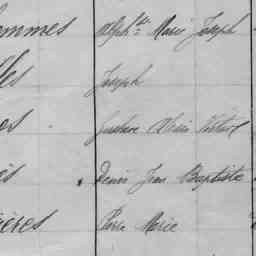 ommes Alph.se Marie Joseph
les Joseph
es Gustave
es Denis Jean Baptiste
ières Pierre Marie